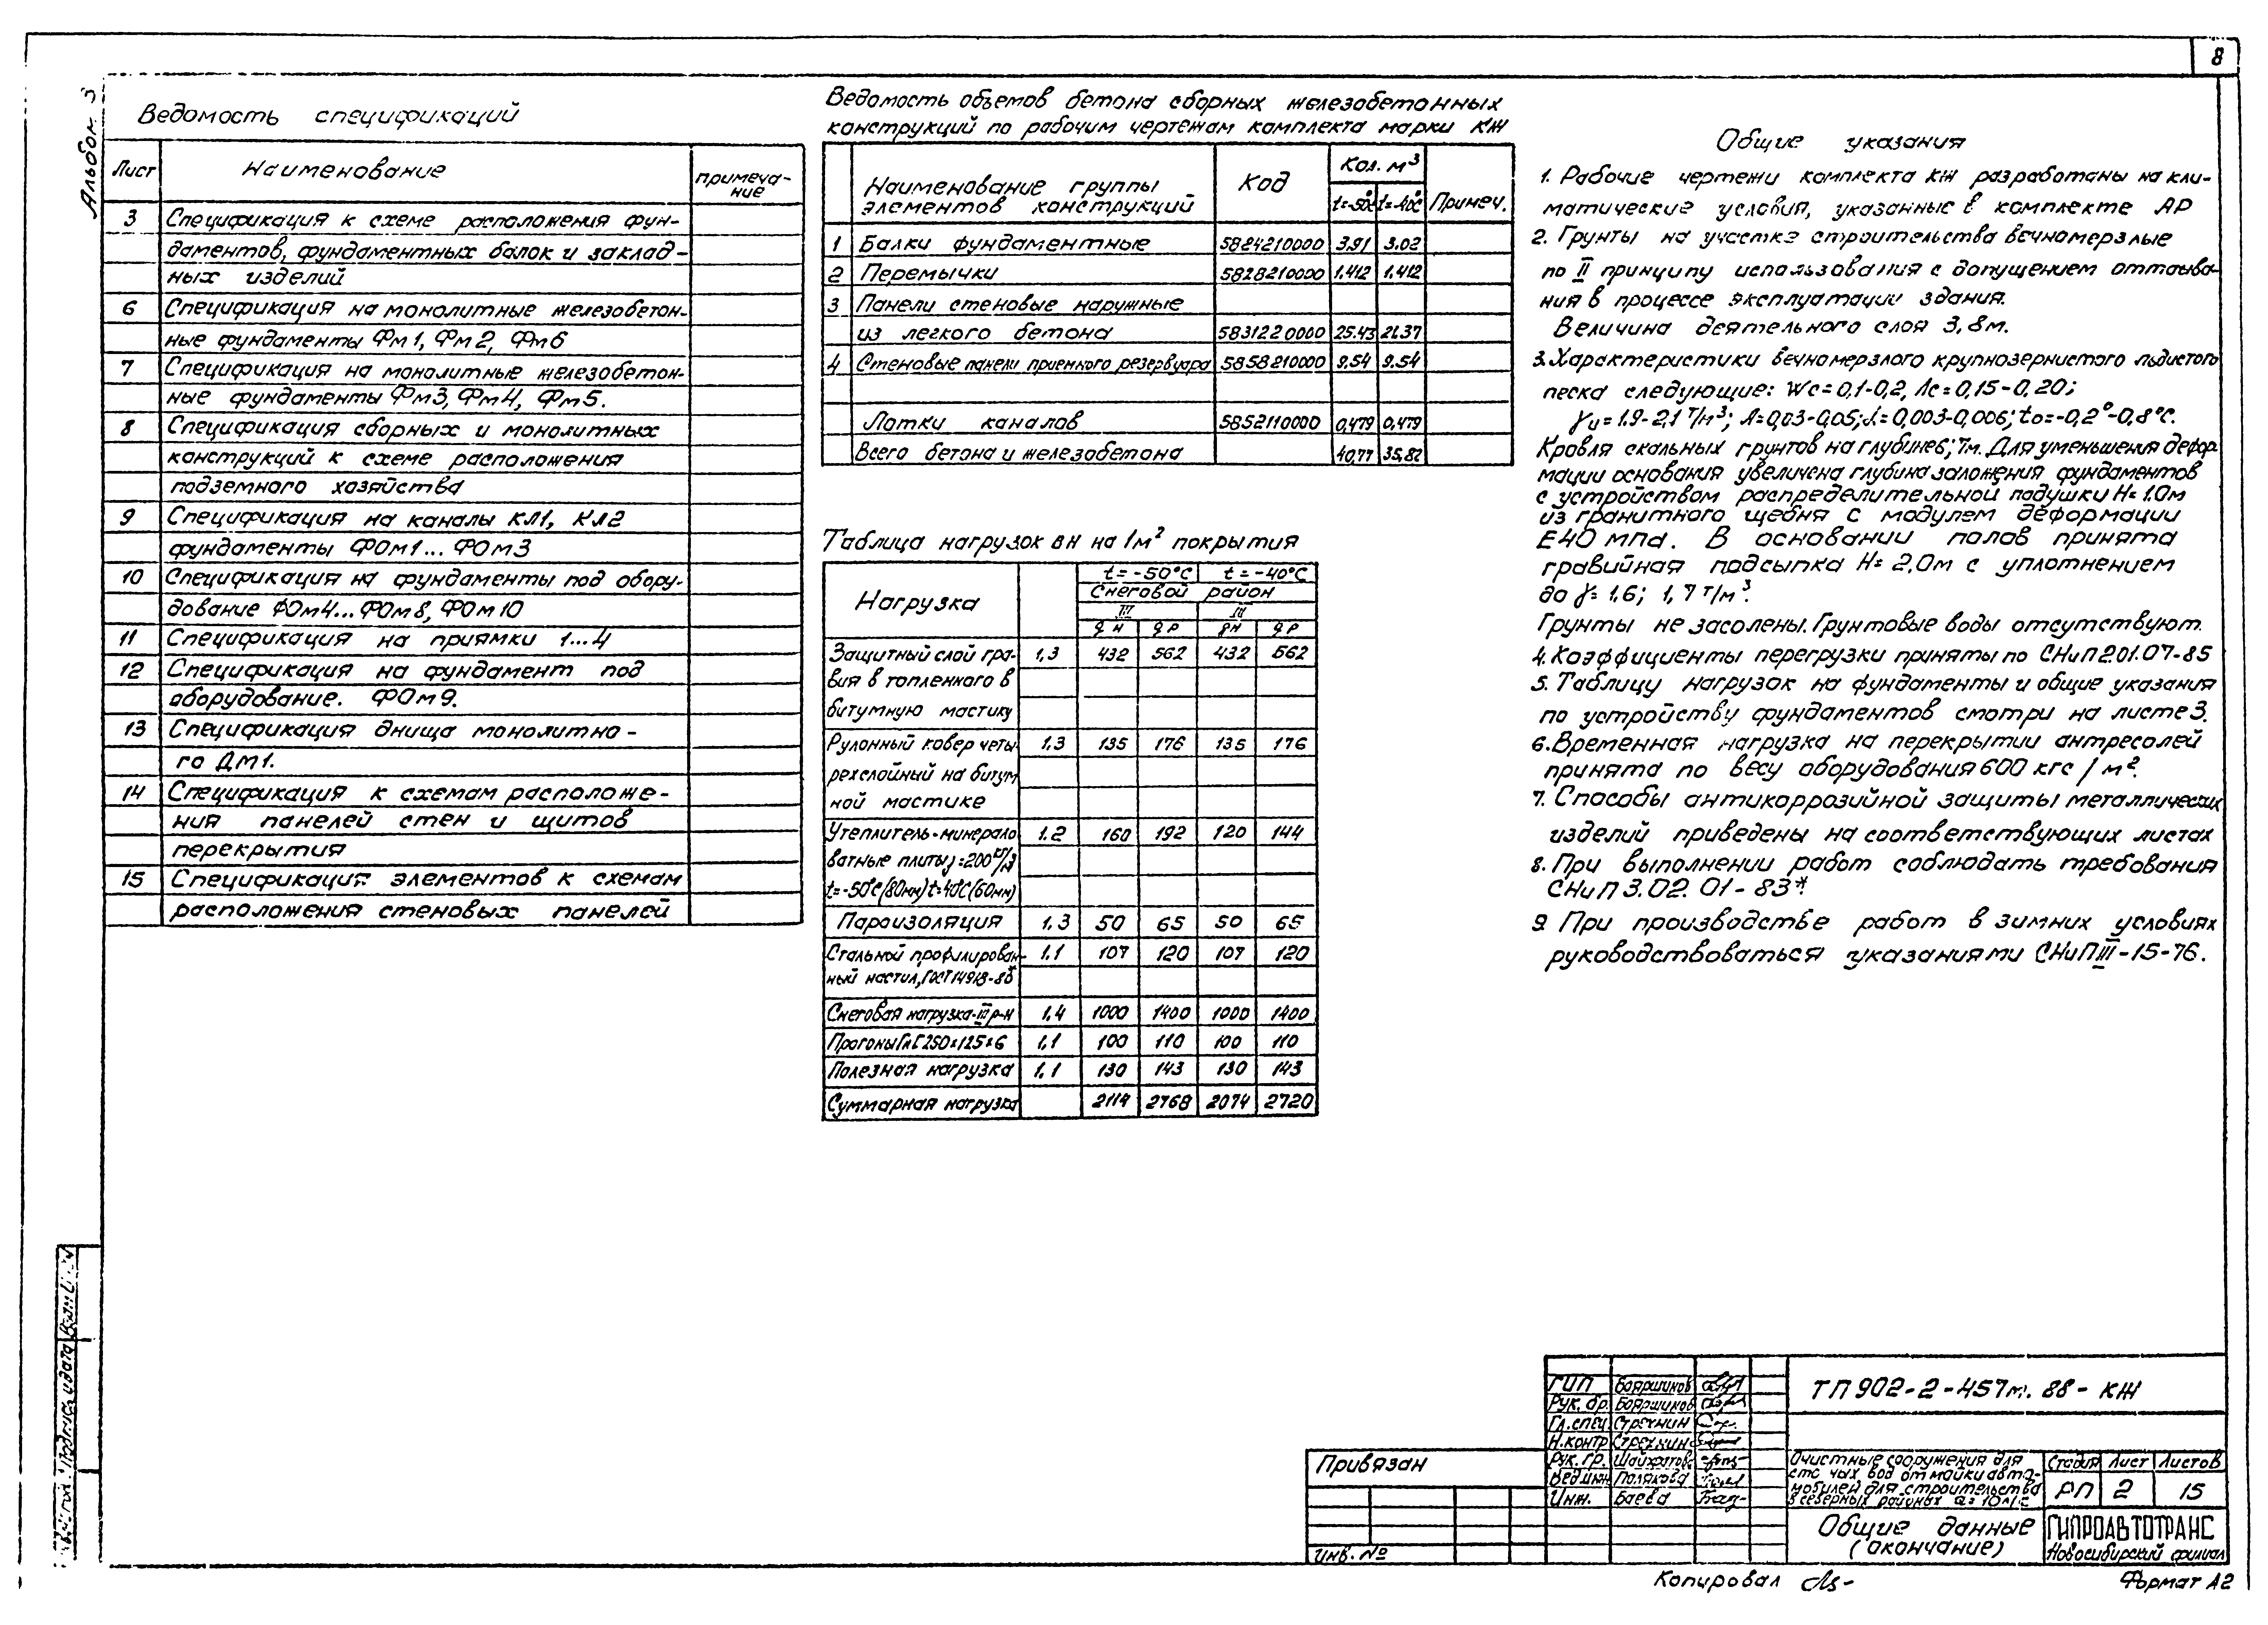 8
Альбом 3
Ведомость спецификаций
Лист Наименование примеча-
ние
3 Спецификация к схеме расположения фун-
даментов, фундаментных балок и заклад-
ных изделий
6 Спецификация на монолитные железобетон-
ные фундаменты Фм1, Фм2, Фм6
7 Спецификация на монолитные железобетон-
ные фундаменты Фм3, Фм4, Фм5.
8 Спецификация сборных и монолитных
конструкций к схеме расположения
подземного хозяйства
9 Спецификация на каналы КЛ1, КЛ2
фундаменты ФОм1... ФОм3
10 Спецификация на фундаменты под обору-
дование ФОм4... ФОм8, ФОм10
11 Спецификация на приямки 1...4
12 Спецификация на фундамент под
оборудование. ФОм9.
13 Спецификация днища монолитно-
го ДМ1.
14 Спецификация к схемам расположе-
ния панелей стен и щитов
перекрытия
15 Спецификация элементов к схемам
расположения стеновых панелей
Ведомость объемов бетона сборных железобетонных
конструкций по рабочим чертежам комплекта марки КЖ
Наименование группы элементов конструкций Код Кол. м³ Примеч.
t=-50°С t=-40°С
1 Балки фундаментные 5824210000 3.91 3.02
2 Перемычки 5828210000 1.412 1.412
3 Панели стеновые наружные
из легкого бетона 5831220000 25.43 21.37
4 Стеновые панели приемного резервуара 5858210000 9.54 9.54
Лотки каналов 5852110000 0,479 0,479
Всего бетона и железобетона 40,77 35,82
Таблица нагрузок вн на 1м² покрытия
Нагрузка t=-50°С t=-40°С
Снеговой район
III III
qн qр qн qр
Защитный слой гра- 1,3 432 562 432 562
вия втопленного в
битумную мастику
Рулонный ковер четы- 1.3 135 176 135 176
рехслойный на битум
ной мастике
Утеплитель-минерало 1.2 160 192 120 144
ватные плиты γ=200кг/м³
t=-50°С(80мм) t=40°С(60мм)
Пароизоляция 1,3 50 65 50 65
Стальной профилирован- 1.1 107 120 107 120
ный настил, ГОСТ 14918-80
Снеговая нагрузка-III р-н 1,4 1000 1400 1000 1400
Прогоны Гн [ 250×125×6 1,1 100 110 100 110
Полезная нагрузка 1,1 130 143 130 143
Суммарная нагрузка 2114 2768 2074 2720
Общие указания
1. Рабочие чертежи комплекта КЖ разработаны на кли-
матические условия, указанные в комплекте АР
2. Грунты на участке строительства вечномерзлые
по II принципу использования с допущением оттаива-
ния в процессе эксплуатации здания.
Величина деятельного слоя 3,8м.
3. Характеристики вечномерзлого крупнозернистого льдистого
песка следующие: Wc=0,1-0,2, Лс=0,15-0,20;
γu=1.9-2,1 т/м³; А=0,03-0,05; λ=0,003-0,006; to=-0,2°-0,8°С.
Кровля скальных грунтов на глубине 6; 7м. Для уменьшения дефор
мации основания увеличена глубина заложения фундаментов
с устройством распределительной подушки Н=1.0м
из гранитного щебня с модулем деформации
Е40 мпа. В основании полов принята
гравийная подсыпка Н=2,0м с уплотнением
до γ=1,6; 1,7 т/м³.
Грунты не засолены. Грунтовые воды отсутствуют.
4. Коэффициенты перегрузки приняты по СНиП 2.01.07-85
5. Таблицу нагрузок на фундаменты и общие указания
по устройству фундаментов смотри на листе 3.
6. Временная нагрузка на перекрытии антресолей
принята по весу оборудования 600 кгс/м².
7. Способы антикоррозийной защиты металлических
изделий приведены на соответствующих листах
8. При выполнении работ соблюдать требования
СНиП 3.02.01-83*.
9. При производстве работ в зимних условиях
руководствоваться указаниями СНиП III-15-76.
Привязан
Инв. №
ГИП Бояршинов
Рук. бр. Бояршинов
Гл. спец Стрехнин
Н.контр Стрехнин
Рук. гр.
Вед.инж Полякова
Инж. Баева
ТП 902-2-457м.88-КЖ
Очистные сооружения для
сточных вод от мойки авто-
мобилей для строительства
в северных районах Q=10 л/с
Стадия Лист Листов
РП 2 15
Общие данные
(окончание)
ГИПРОАВТОТРАНС
Новосибирский филиал
Копировал
Формат А2